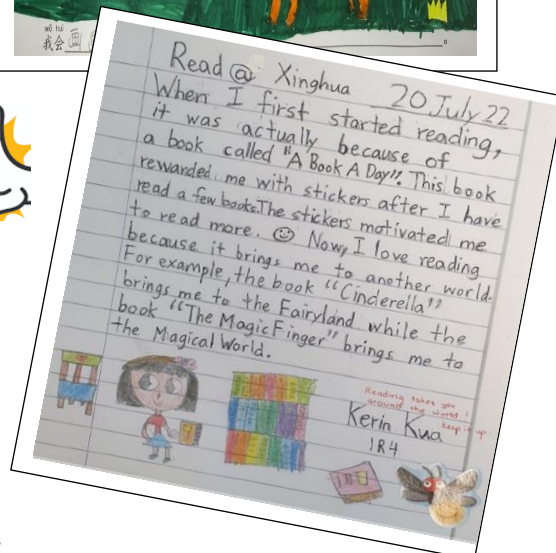 wǒ huì
我会画
Read @ Xinghua 20 July 22
When I first started reading,
it was actually because of
a book called "A Book A Day". This book
rewarded me with stickers after I have
read a few books. The stickers motivated me
to read more. ☺ Now, I love reading
because it brings me to another world.
For example, the book "Cinderella"
brings me to the Fairyland while the
book "The Magic Finger" brings me to
the Magical World.
Reading takes you
around the world!
keep it up.
Kerin Kua
1R4